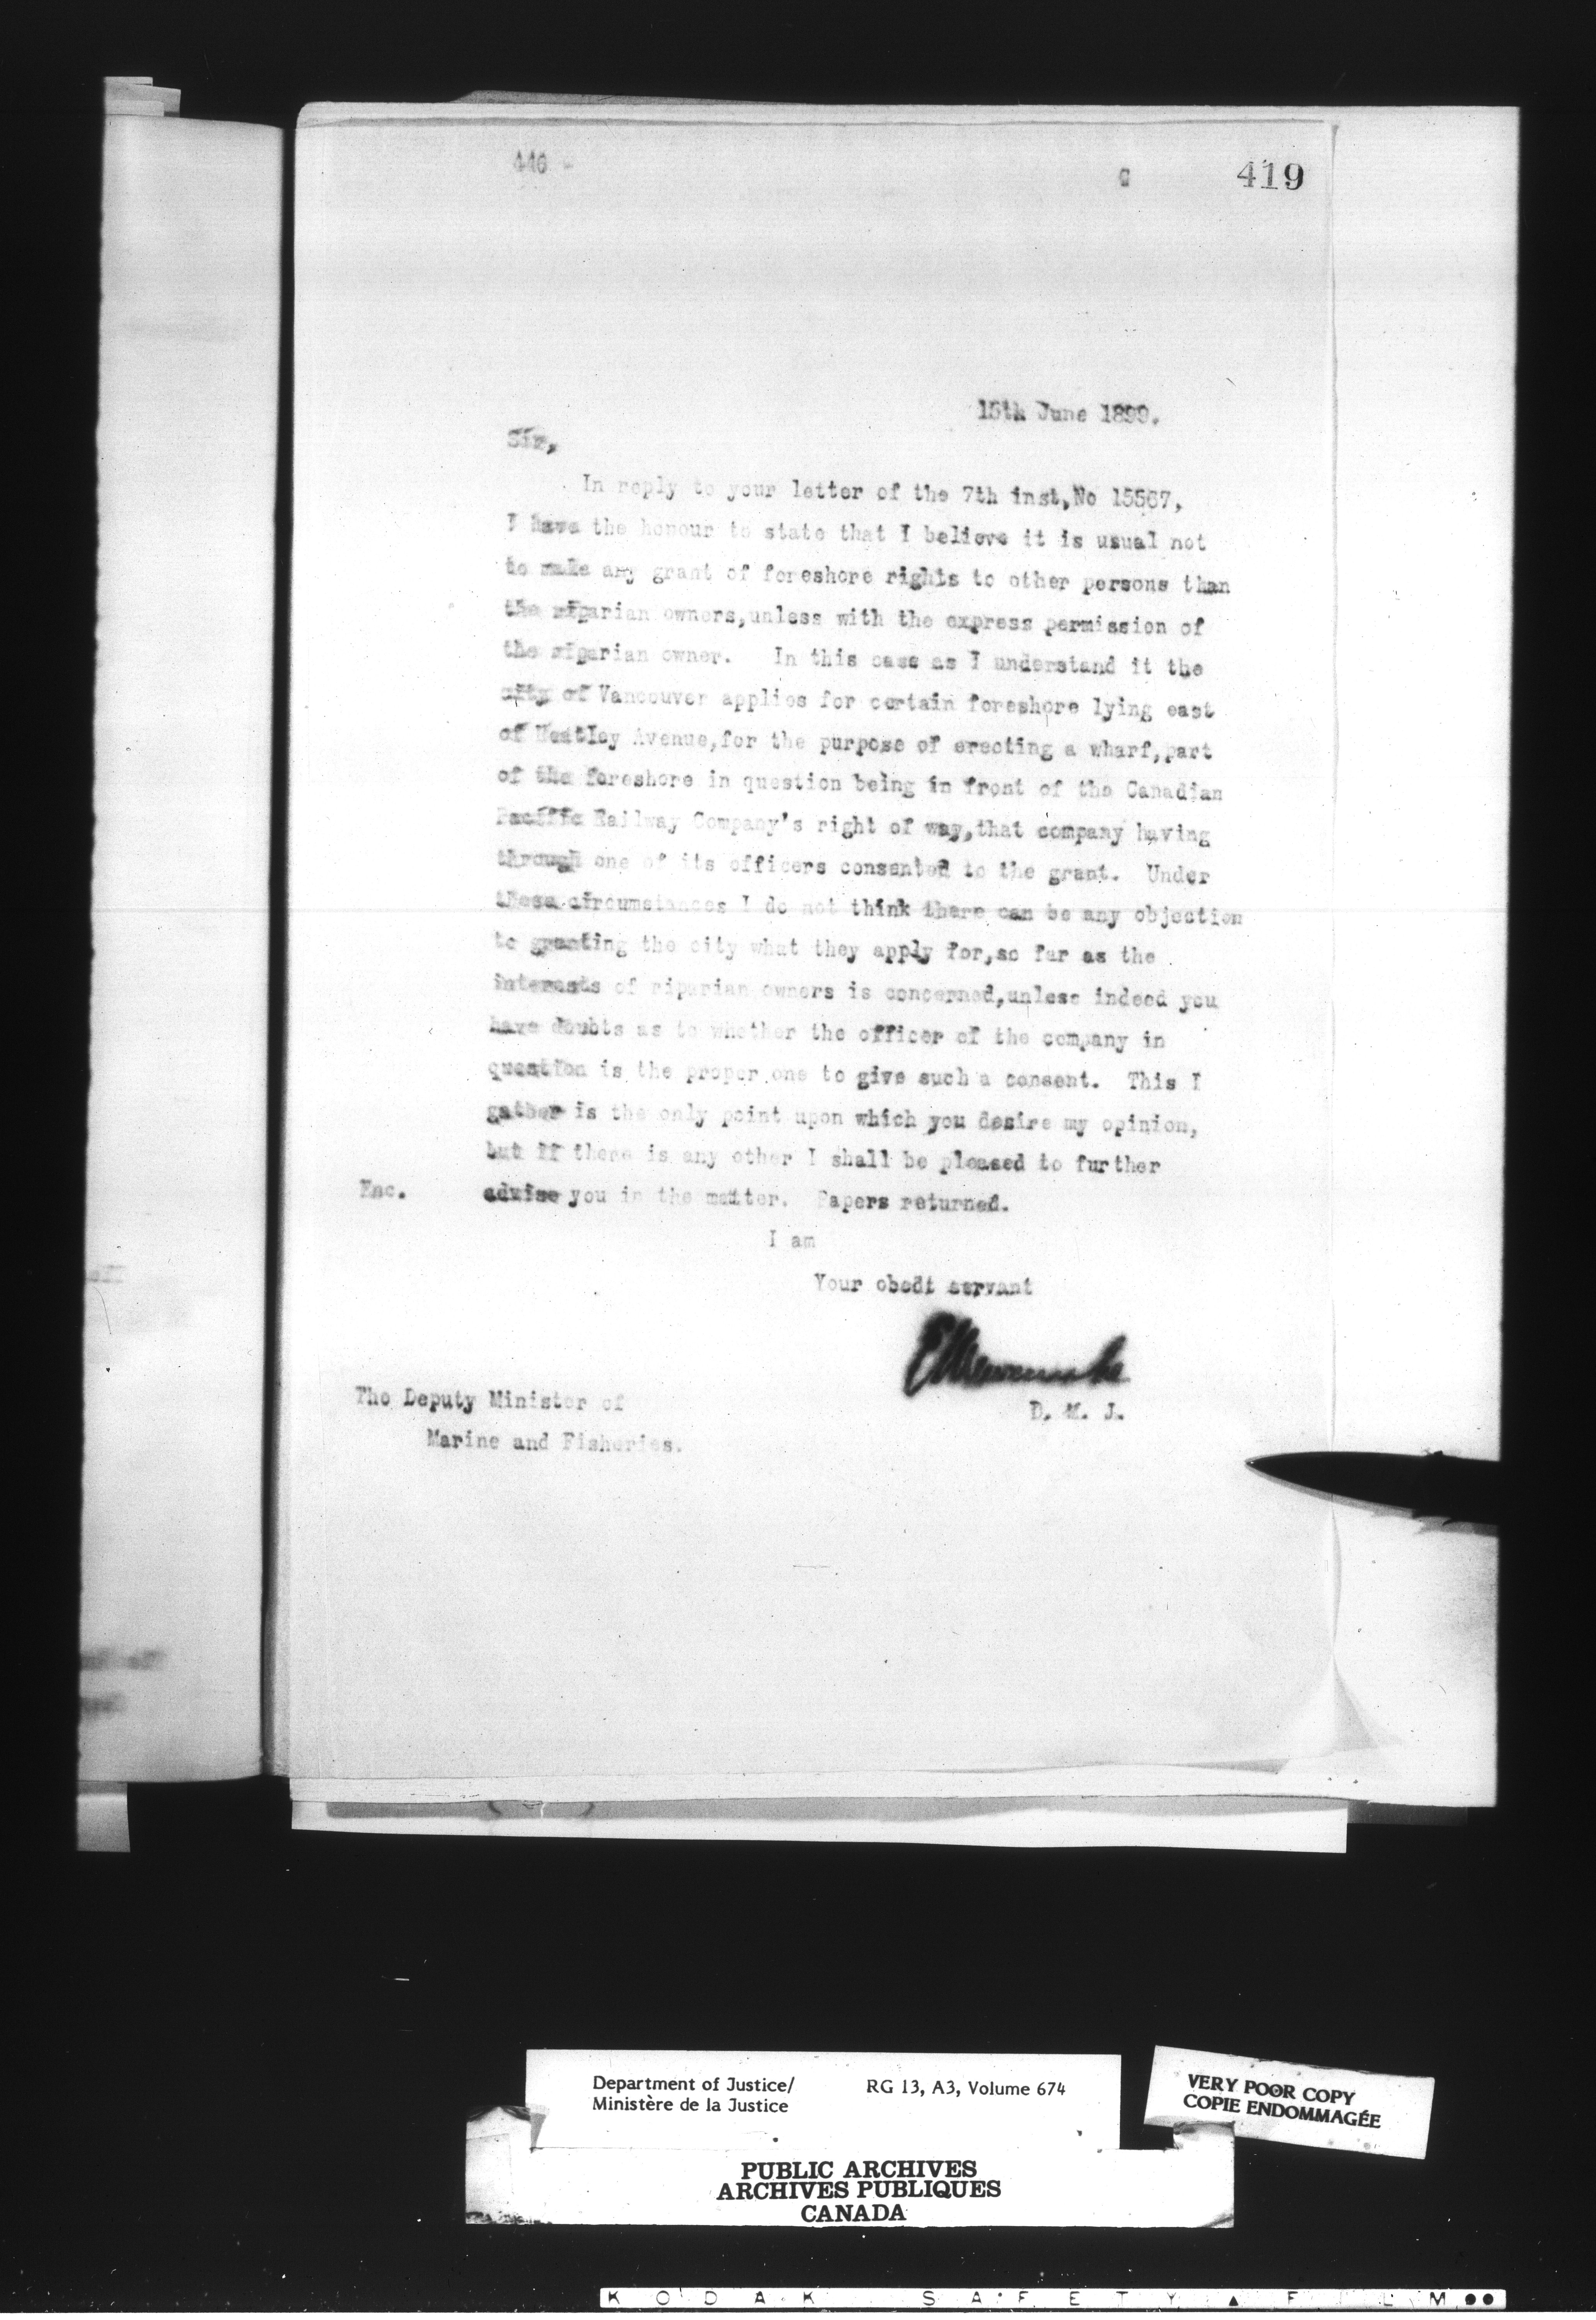 446
C 419
15th June 1899.
Sir,
In reply to your letter of the 7th inst, No 15567,
I have the honour to state that I believe it is usual not
to make any grant of foreshore rights to other persons than
the riparian owners, unless with the express permission of
the riparian owner. In this case as I understand it the
city of Vancouver applies for certain foreshore lying east
of Heatley Avenue, for the purpose of erecting a wharf, part
of the foreshore in question being in front of the Canadian
Pacific Railway Company's right of way, that company having
through one of its officers consented to the grant. Under
these circumstances I do not think there can be any objection
to granting the city what they apply for, so far as the
interests of riparian owners is concerned, unless indeed you
have doubts as to whether the officer of the company in
question is the proper one to give such a consent. This I
gather is the only point upon which you desire my opinion,
but if there is any other I shall be pleased to further
Enc. advise you in the matter. Papers returned.
I am
Your obedt servant
E L Newcombe
D. M. J.
The Deputy Minister of
Marine and Fisheries.
Department of Justice/ RG 13, A3, Volume 674
Ministère de la Justice
VERY POOR COPY
COPIE ENDOMMAGÉE
PUBLIC ARCHIVES
ARCHIVES PUBLIQUES
CANADA
KODAK SAFETY FILM